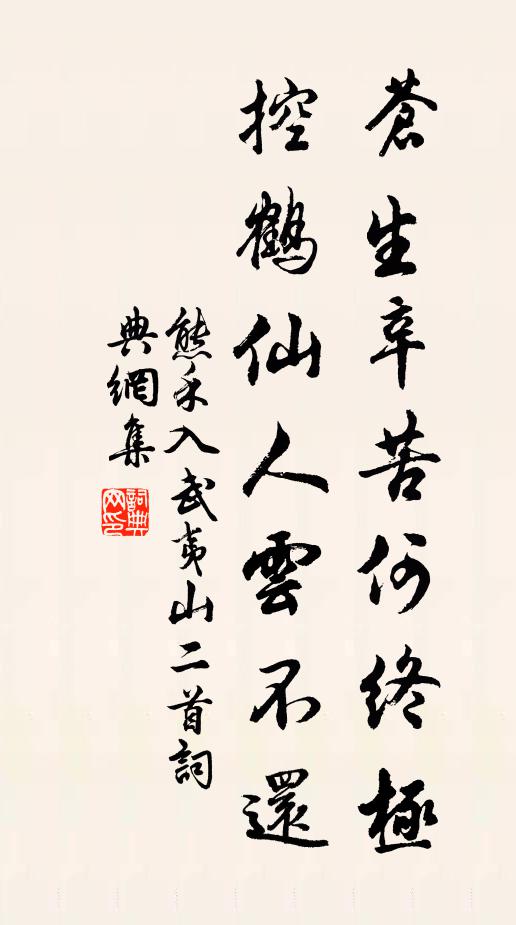 蒼生辛苦何終極
控鶴仙人雲不還
熊禾入武夷山二首詞
典網集
詞典網印